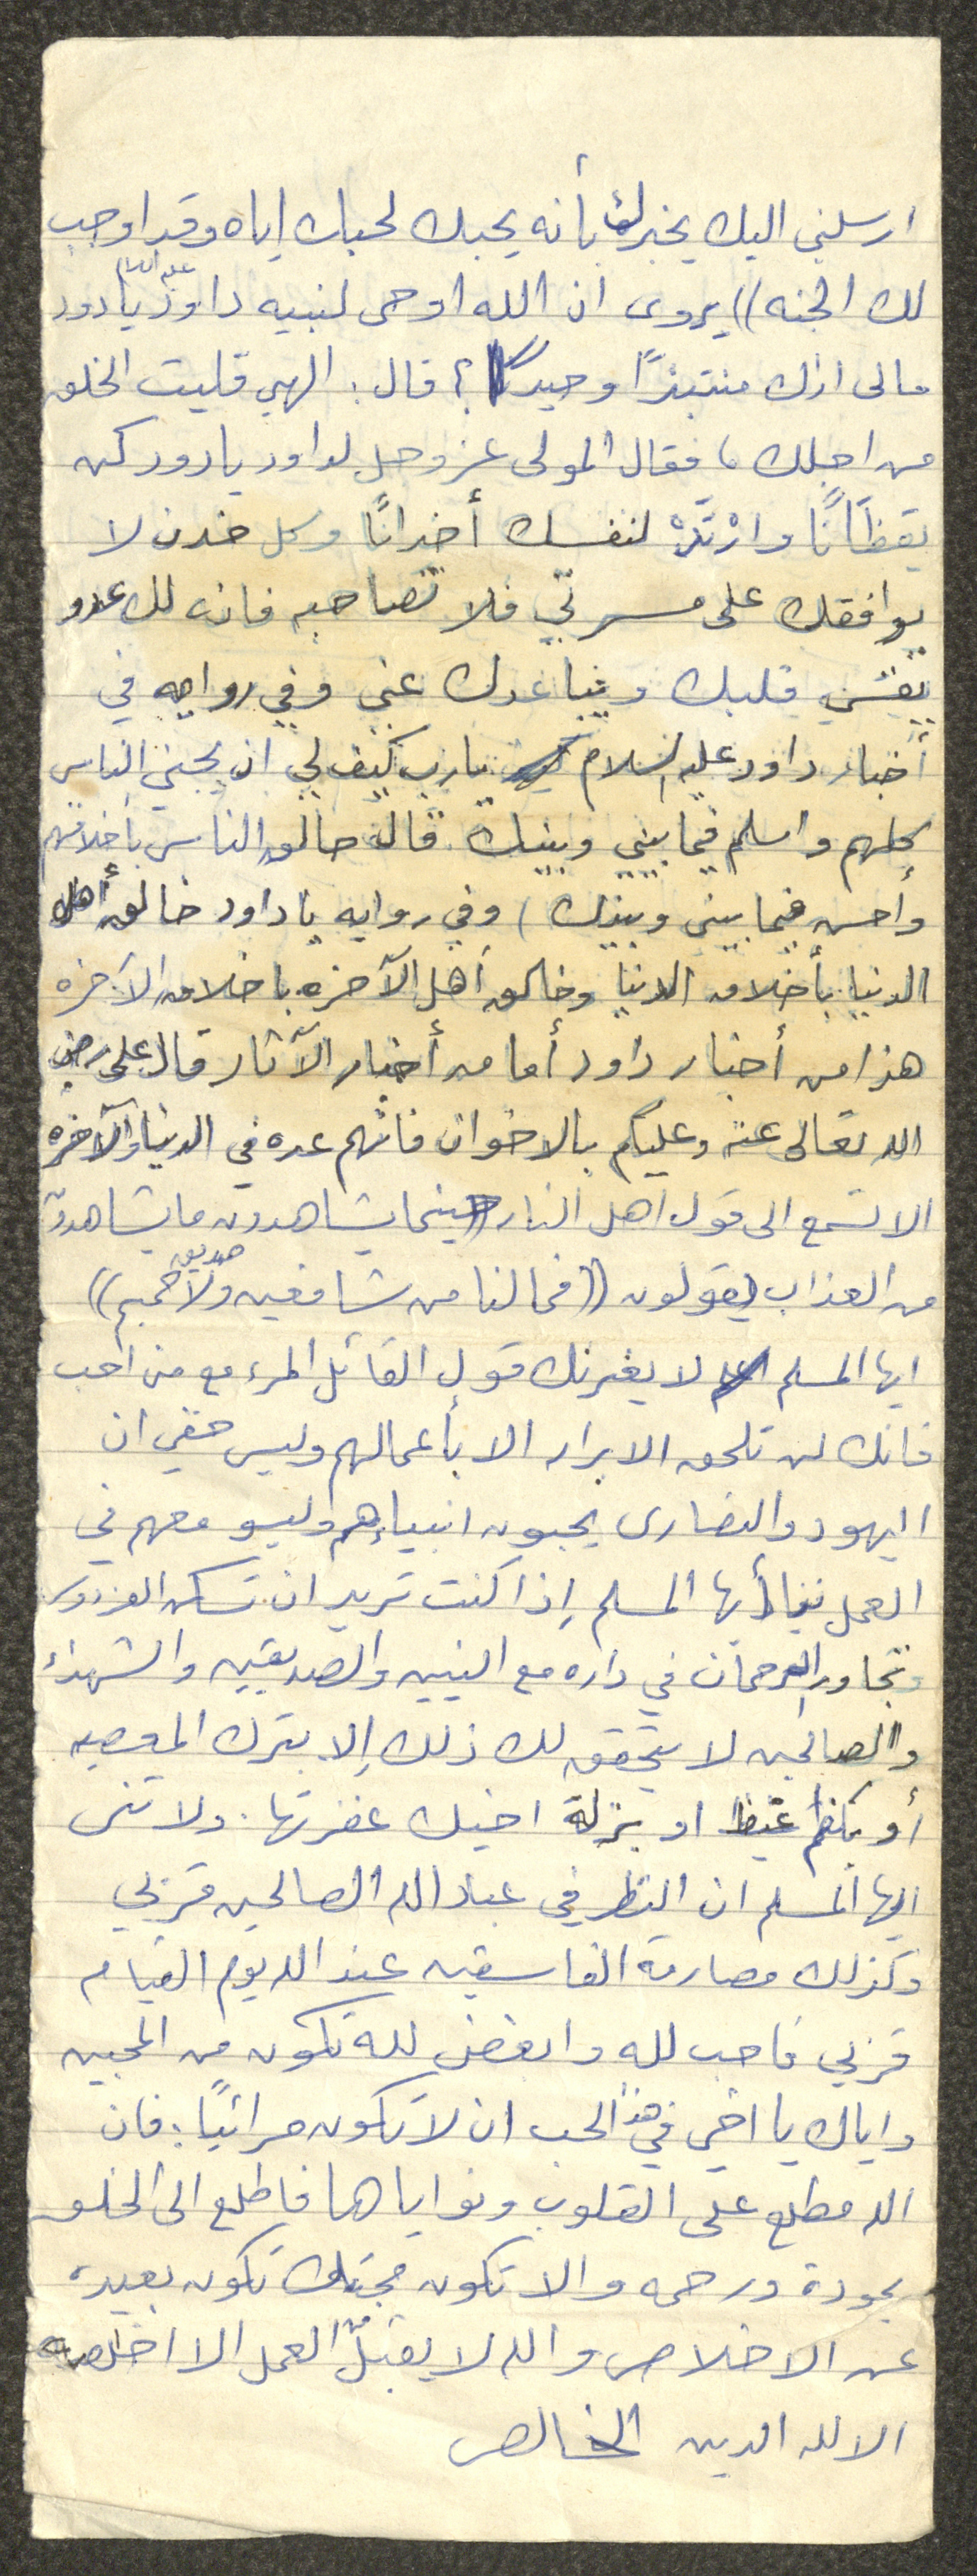 ارسلني اليك يخبرك بأنه يحبك لحبك إياه وقد اوجب
لك الجنه)) يروى ان الله اوحى لنبيه داود عليه السلام يا داود
مالى اراك منتبذًا وحيدًا؟ قال: الهي قليت الخلق
من اجلك، فقال المولى عز وجل لداود يا داود كن
يقظانًا وارْتَدْ لنفسك أخدانًا وكل خدن لا
يوافقك على مسرتي فلا تصاحبه فانه لك عدو
يقسّي قلبك ويباعدك عني وفي روايه في
أخبار داود عليه السلام يارب كيف لي ان يحبني الناس
كلهم واسلم فيما بيني وبينك قال خالق الناس بأخلاقهم
وأحسن فيما بيني وبينك) وفي روايه يا داود خالق أهل
الدنيا بأخلاق الدنيا وخالق أهل الآخره باخلاق الآخره
هذا من أخبار داود أما من أخبار الآثار قال على رضي
الله تعالى عنه وعليكم بالاخوان فانهم عده في الدنيا والآخره
الا تسمع الى قول اهل النار حينما يشاهدون ما يشاهدون
من العذاب (يقولون ((فمالنا من شافعين ولا صديق حميم))
ايها المسلم لا يغرنك قول القائل المرء مع من احب
فانك لن تلحق الابرار الا بأعمالهم وليس خفي ان
اليهود والنصارى يحبون انبياءهم وليسو معهم في
العمل فيا أيها المسلم إذا كنت تريد ان تسكن الفردوس
وتجاور الرحمان في داره مع النبيين والصديقين والشهداء
والصالحين لا يتحقق لك ذلك إلا بترك المعصيه
أو بكظم غيظ او بزلة اخيك غفرتها. ولا تنس
ايها المسلم ان النظر في عباد الله الصالحين قربى
وكذلك مصارمة الفاسقين عند الله يوم القيام
قربي فاحب لله وابغض لله تكون من المحبين
واياك يا اخي في هذا الحب ان لا تكون مرائيًا: فان
الله مطلع على القلوب ونواياها فاطلع الى الخلق
بمودة ورحمه والا تكون محبتك تكون بعيدة
عن الاخلاص والله لا يقبل من العمل الا اخلصه
الا لله الدين الخالص